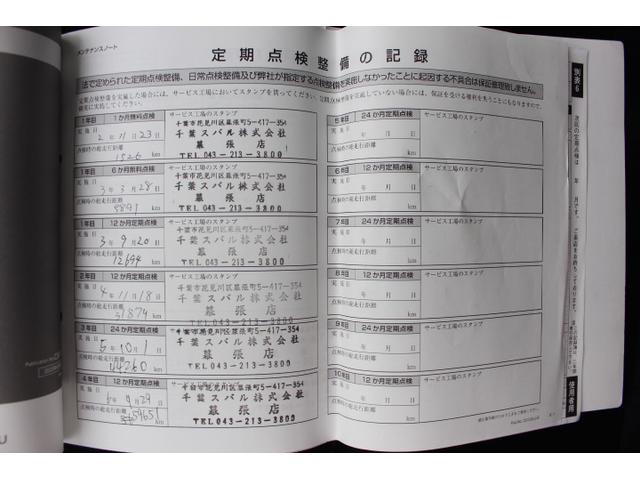 メンテナンスノート
定期点検整備の記録
法で定められた定期点検整備、日常点検整備及び弊社が指定する点検整備を実施しなかったことに起因する不具合は保証修理致しません。
1年目 1か月無料点検
サービス工場のスタンプ
実施日 2年11月23日
点検時の総走行距離
1526 km
千葉市花見川区幕張町5-417-354
千葉スバル株式会社
幕張店
TEL 043-213-3800
1年目 6か月無料点検
サービス工場のスタンプ
実施日 3年3月28日
点検時の総走行距離
5891 km
千葉市花見川区幕張町5-417-354
千葉スバル株式会社
幕張店
TEL 043-213-3800
1年目 12か月定期点検
サービス工場のスタンプ
実施日 3年9月20日
点検時の総走行距離
12694 km
千葉市花見川区幕張町5-417-354
千葉スバル株式会社
幕張店
TEL 043-213-3800
2年目 12か月定期点検
サービス工場のスタンプ
実施日 4年11月18日
点検時の総走行距離
31879 km
千葉市花見川区幕張町5-417-354
千葉スバル株式会社
幕張店
TEL 043-213-3800
3年目 24か月定期点検
サービス工場のスタンプ
実施日 5年10月1日
点検時の総走行距離
44260 km
千葉市花見川区幕張町5-417-354
千葉スバル株式会社
幕張店
TEL 043-213-3800
4年目 12か月定期点検
サービス工場のスタンプ
実施日 6年9月29日
点検時の総走行距離
km
千葉市花見川区幕張町5-417-354
千葉スバル株式会社
幕張店
TEL 043-213-3800
5年目 24か月定期点検
サービス工場のスタンプ
実施日 年 月 日
点検時の総走行距離
km
6年目 12か月定期点検
サービス工場のスタンプ
実施日 年 月 日
点検時の総走行距離
km
7年目 24か月定期点検
サービス工場のスタンプ
実施日 年 月 日
点検時の総走行距離
km
8年目 12か月定期点検
サービス工場のスタンプ
実施日 年 月 日
点検時の総走行距離
km
9年目 24か月定期点検
サービス工場のスタンプ
実施日 年 月 日
点検時の総走行距離
km
10年目 12か月定期点検
サービス工場のスタンプ
実施日 年 月 日
点検時の総走行距離
km
別表6
次回の定期点検は 年 月です。
使用者用